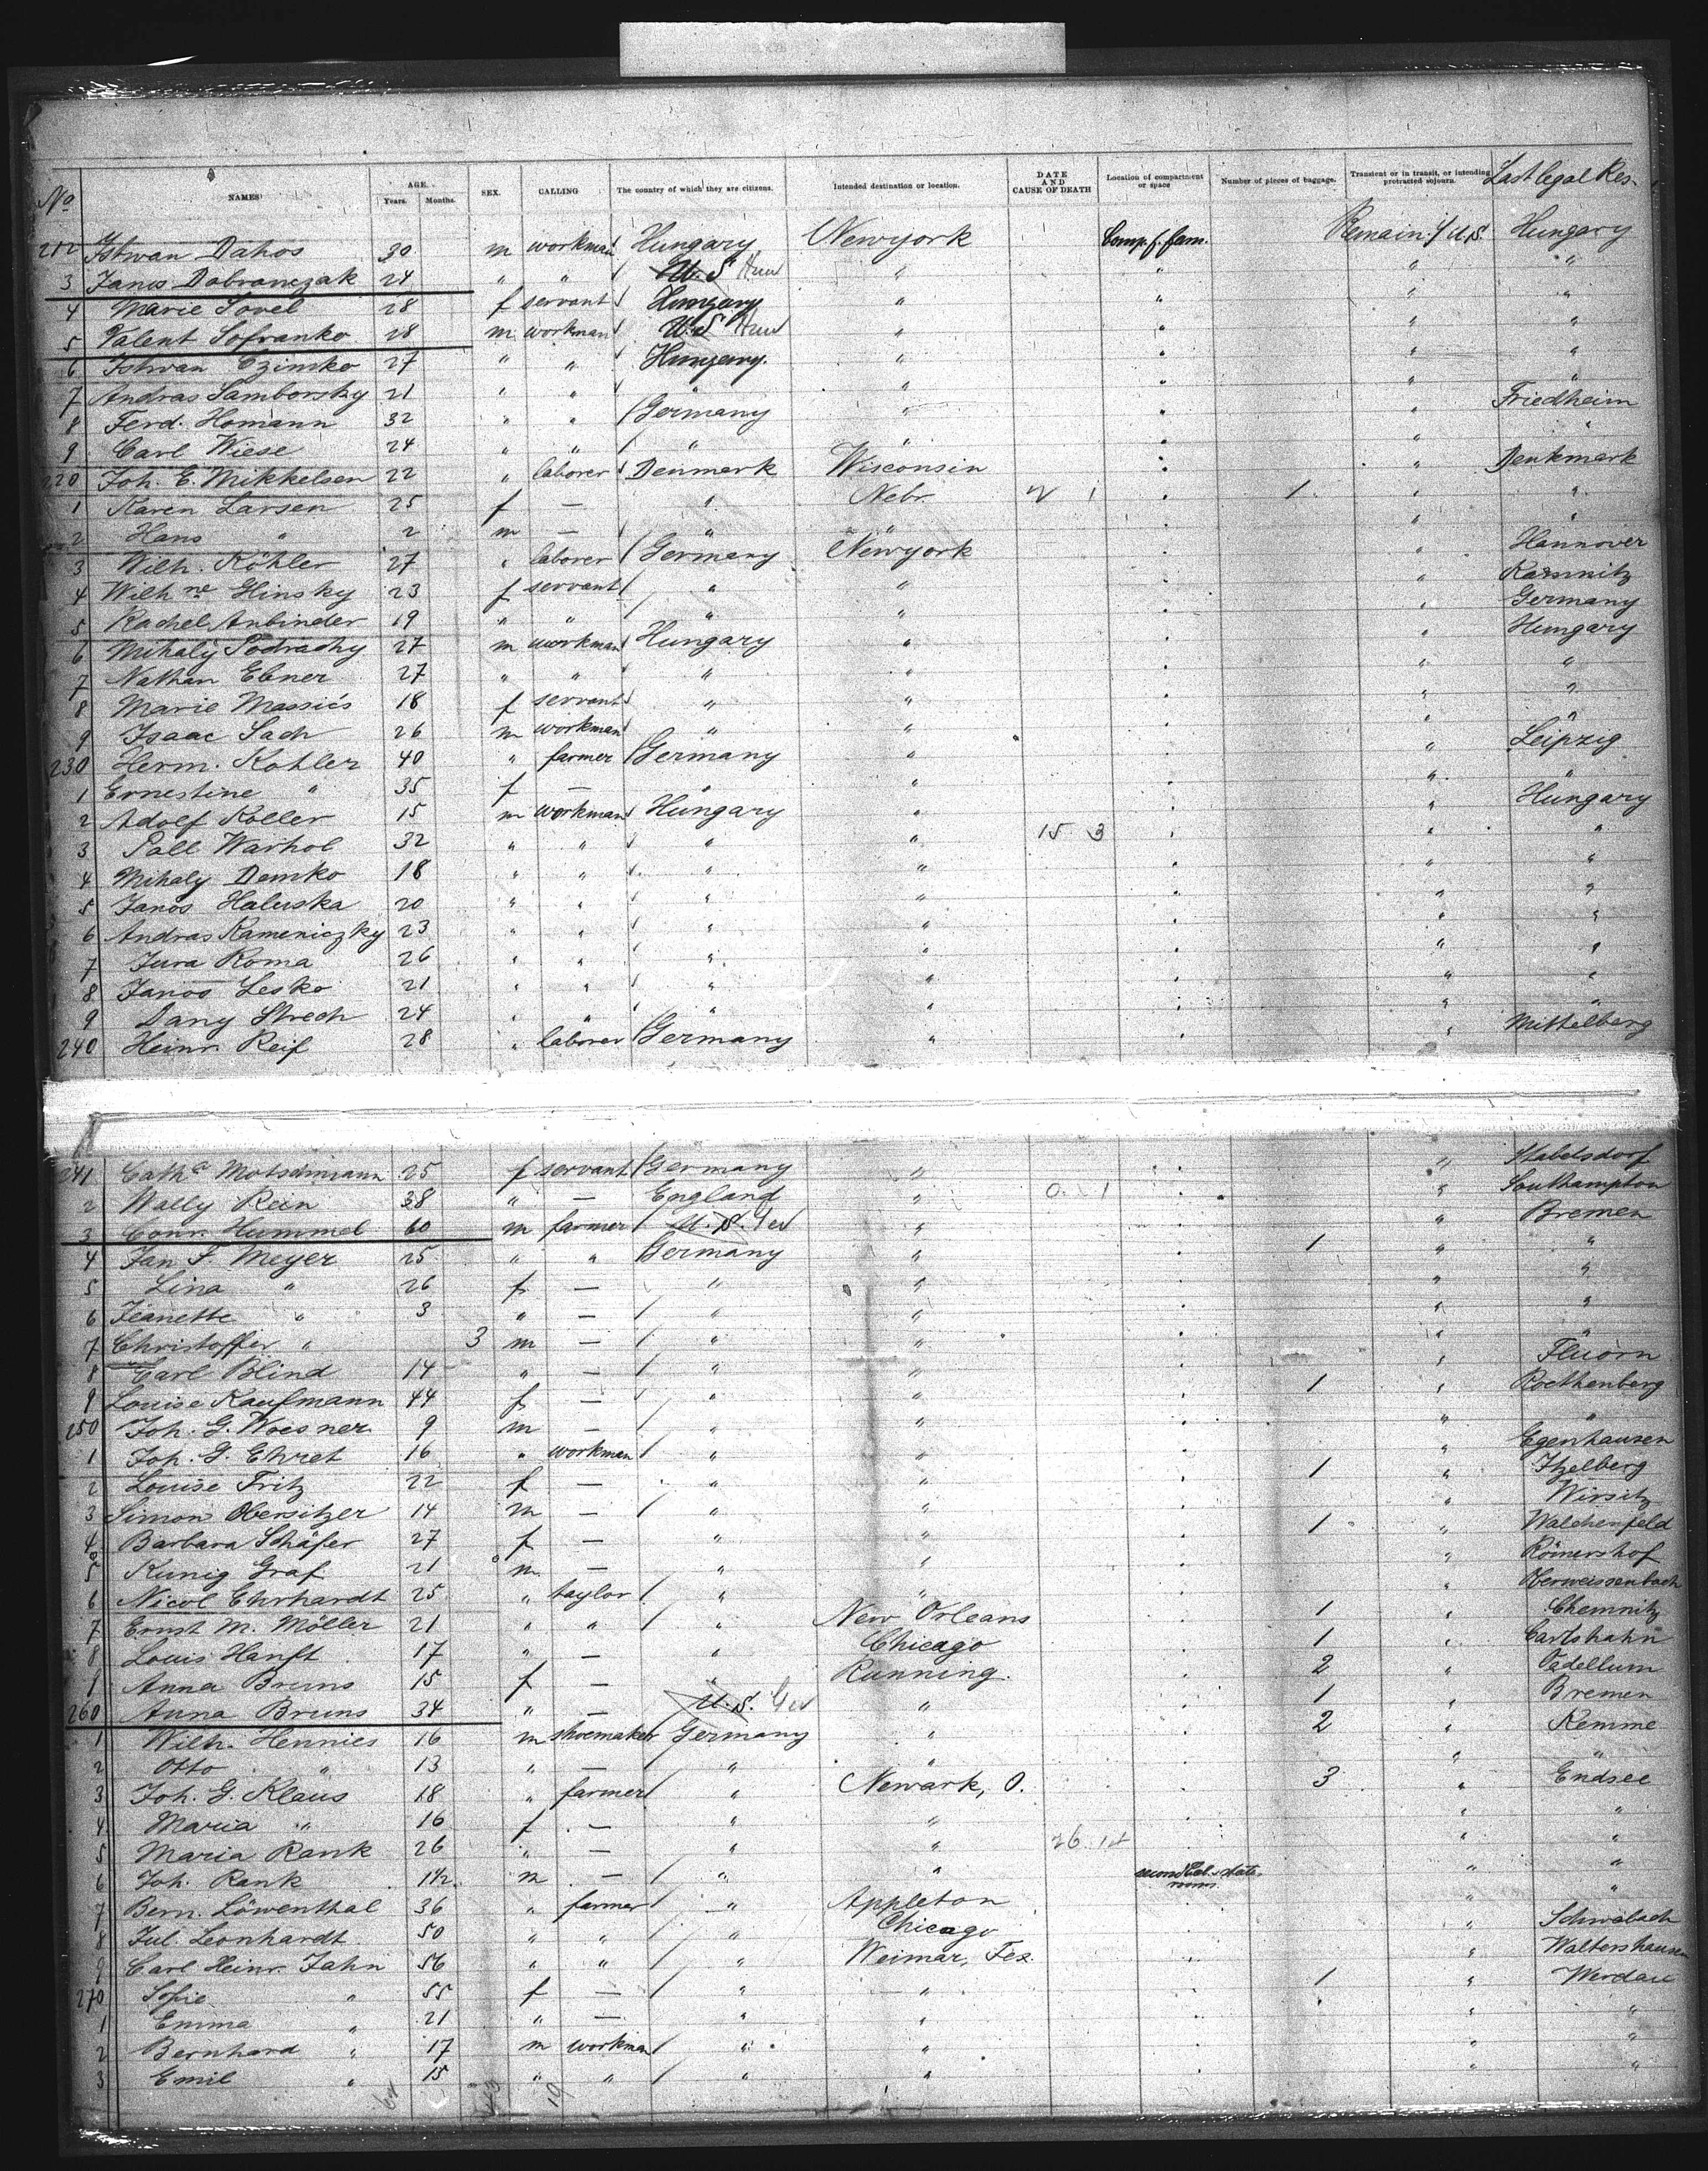 No NAMES AGE. Years. Months. SEX. CALLING The country of which they are citizens. Intended destination or location. DATE AND CAUSE OF DEATH Location of compartment or space Number of pieces of baggage. Transient or in transit, or intending protracted sojourn. Last legal Res.
212 Istwan Dahos 30 m workman Hungary Newyork Comp. f. fam. Remain i/ U.S. Hungary
3 Janos Dobranczak 24 " " U.S " " " "
4 Marie Sovel 28 f servant Hungary " " " "
5 Valent Sofranko 28 m workman U.S " " " "
6 Istwan Czimko 27 " " Hungary. " " " "
7 Andras Samborsky 21 " " " " " " "
8 Ferd. Homann 32 " " Germany " " " Friedheim
9 Carl Wiese 24 " " " " " " "
220 Joh. E. Mikkelsen 22 " laborer Denmark Wisconsin " " Denkmark
1 Karen Larsen 25 f — " Nebr. " 1 " "
2 Hans " 2 m — " " " " "
3 Wilh. Köhler 27 " laborer Germany Newyork " " Hannover
4 Wilh ne Glinsky 23 f servant " " " "
5 Rachel Anbinder 19 " " " " " " Germany
6 Mihaly Podrachy 27 m workman Hungary " " " Hungary
7 Nathan Ebner 27 " " " " " " "
8 Marie Massics 18 f servant " " " " "
9 Isaac Sach 26 m workman " " " " "
230 Herm. Kohler 40 " farmer Germany " " " Leipzig
1 Ernestine " 35 f — " " " " "
2 Adolf Koller 15 m workman Hungary " " " Hungary
3 Pall Warhol 32 " " " " 15 3 " " "
4 Mihaly Demko 18 " " " " " " "
5 Janos Haluska 20 " " " " " " "
6 Andras Kameniczky 23 " " " " " " "
7 Jura Roma 26 " " " " " " "
8 Janos Lesko 21 " " " " " " "
9 Dany Strech 24 " " " " " " "
240 Heinr. Reif 28 " laborer Germany " " " Mittelberg
241 Cath a Motschmann 25 f servant Germany " " " Stabelsdorf
2 Wally Rein 38 " — England " " " Southampton
3 Conr. Hummel 60 m farmer U.S. Ger " " " Bremen
4 Jan F. Meyer 25 " " Germany " " 1 " "
5 Lina " 26 f — " " " " "
6 Jeanette " 3 " — " " " " "
7 Christoffer " 3 m — " " " " "
8 Carl Blind 14 " — " " " " Fluorn
9 Louise Kaufmann 44 f — " " " 1 " Roethenberg
250 Joh. G. Woesner 9 m — " " " " "
1 Joh. G. Ehret 16 " workman " " " " Egenhausen
2 Louise Fritz 22 f — " " " 1 " Itzelberg
3 Simon Obersitzer 14 m — " " " " Wirsitz
4 Barbara Schäfer 27 f — " " " 1 " Walchenfeld
5 Kunig Graf 21 m — " " " " Römershof
6 Nicol Ehrhardt 25 " taylor " " " " Oberweissenbach
7 Ernst M. Möller 21 " " " New Orleans " 1 " Chemnitz
8 Louis Hanft 17 " — " Chicago " 1 "
1 Anna Bruns 15 f — " Running. " 2 "
260 Anna Bruns 34 " — U.S. Ger " " 1 " Bremen
1 Wilh. Hennies 16 m shoemaker Germany " " 2 " Remme
2 Otto " 13 " — " " " " "
3 Joh. G. Klaus 18 " farmer " Newark, O. " 3 " Endsee
4 Maria " 16 f — " " " " "
5 Maria Rank 26 " — " " 26 " " "
6 Joh. Rank 1½ m — " " second Cab. State rooms. " "
7 Bern. Löwenthal 36 " farmer " Appleton " "
8 Jul. Leonhardt 50 " " " Chicago " Schwabach
9 Carl Heinr. Jahn 56 " " " Weimar, Tex. " " Waltershausen
270 Sofie " 55 f — " " 1 " Werdau
1 Emma " 21 " — " " " "
2 Bernhard " 17 m workman " " " "
3 Emil " 15 " " " " " "